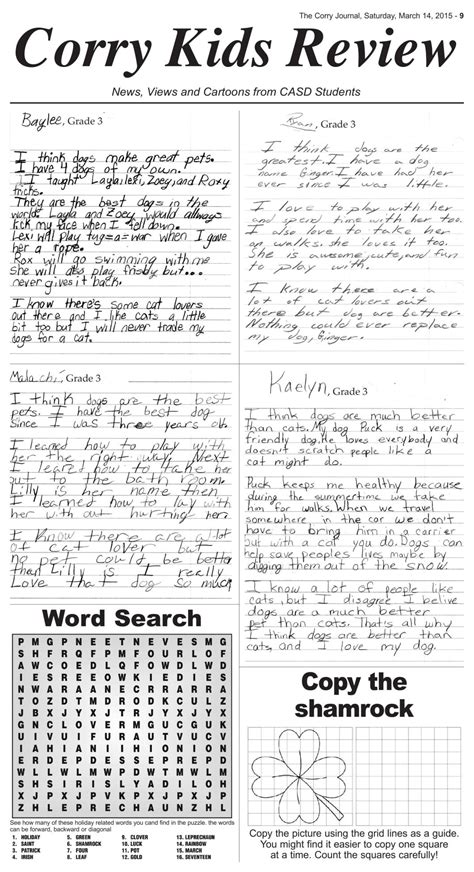 The Corry Journal, Saturday, March 14, 2015 - 9
Corry Kids Review
News, Views and Cartoons from CASD Students
Baylee, Grade 3
I think dogs make great pets.
I have 4 dogs of my own.
I taught Layla, lexi, Zoey, and Roxy
tricks.
They are the best dogs in the
world. Layla and Zoey would allways
lick my face when I fell down.
Lexi will play tug=a=war when I gave
her a rope.
Rox will go swimming with me
She will play frisby but...
never gives it back.
I know there's some cat lovers
out there and I like cats a little
bit too but I will never trade my
dogs for a cat.
Ryan, Grade 3
I think dogs are the
greatest. I have a dog
name Ginger. I have had her
ever since I was little.
I love to play with her
and spend time with her too.
I also love to take her
on walks. she loves it too.
She is awesome, cute, and fun
to play with.
I know there are a
lot of cat lovers out
there but dog are better.
Nothing could ever replace
my dog, Ginger.
Malachi, Grade 3
I think dogs are the best
pets. I have the best dog
Since I was three years old.
I learned how to play with
her the right way. Next
I leared how to take her
out to the bath room.
Lilly is her name then
I learned how to lay with
her with out hurting her.
I Know there are a lot
of cat lover but
no pet could be better
than Lilly is I really
Love that dog so much
Kaelyn, Grade 3
I think dogs are much better
than cats. My dog Puck is a very
friendly dog. He loves everybody and
doesn't scratch people like a
cat might do.
Puck keeps me healthy because
during the summertime we take
him for walks. When we travel
somewhere in the car we don't
have to bring him in a carrier
but with a cat you do. Dogs can
help save peoples' lives maybe by
digging them out of the snow.
I know a lot of people like
cats, but I disagree. I belive
dogs are a much better
pet than cats. That's all why
I think dogs are better than
cats, and I love my dog.
Word Search
P M G P N E E T N E V E S M G
S H F R Q F P M F O U R L O F
A W C O E D L Q F O W D L W D
I E S R E E O W K I E D I E S
N W A R A A N E C R R A R R A
T O Z D T M D R O D K C U L Z
J B X J Y X J T R J Y X J Y X
G N C L O V E R M G U C G U K
U I V U I F U R A U T V U C T
I A H I A N I I H I O N I O N
E R D E P D E S S E P R E P D
W L L W L M W P D W T M W L M
S H S I R I S L Y A D I L O H
X J P X J P V K P X J P X J P
Z H L E P R E C H A U N Z H L
See how many of these holiday related words you cand find in the puzzle. the words
can be forward, backward or diagonal
1. HOLIDAY 5. GREEN 9. CLOVER 13. LEPRECHAUN
2. SAINT 6. SHAMROCK 10. LUCK 14. RAINBOW
3. PATRICK 7. FOUR 11. POT 15. MARCH
4. IRISH 8. LEAF 12. GOLD 16. SEVENTEEN
Copy the
shamrock
Copy the picture using the grid lines as a guide.
You might find it easier to copy one square
at a time. Count the squares carefully!